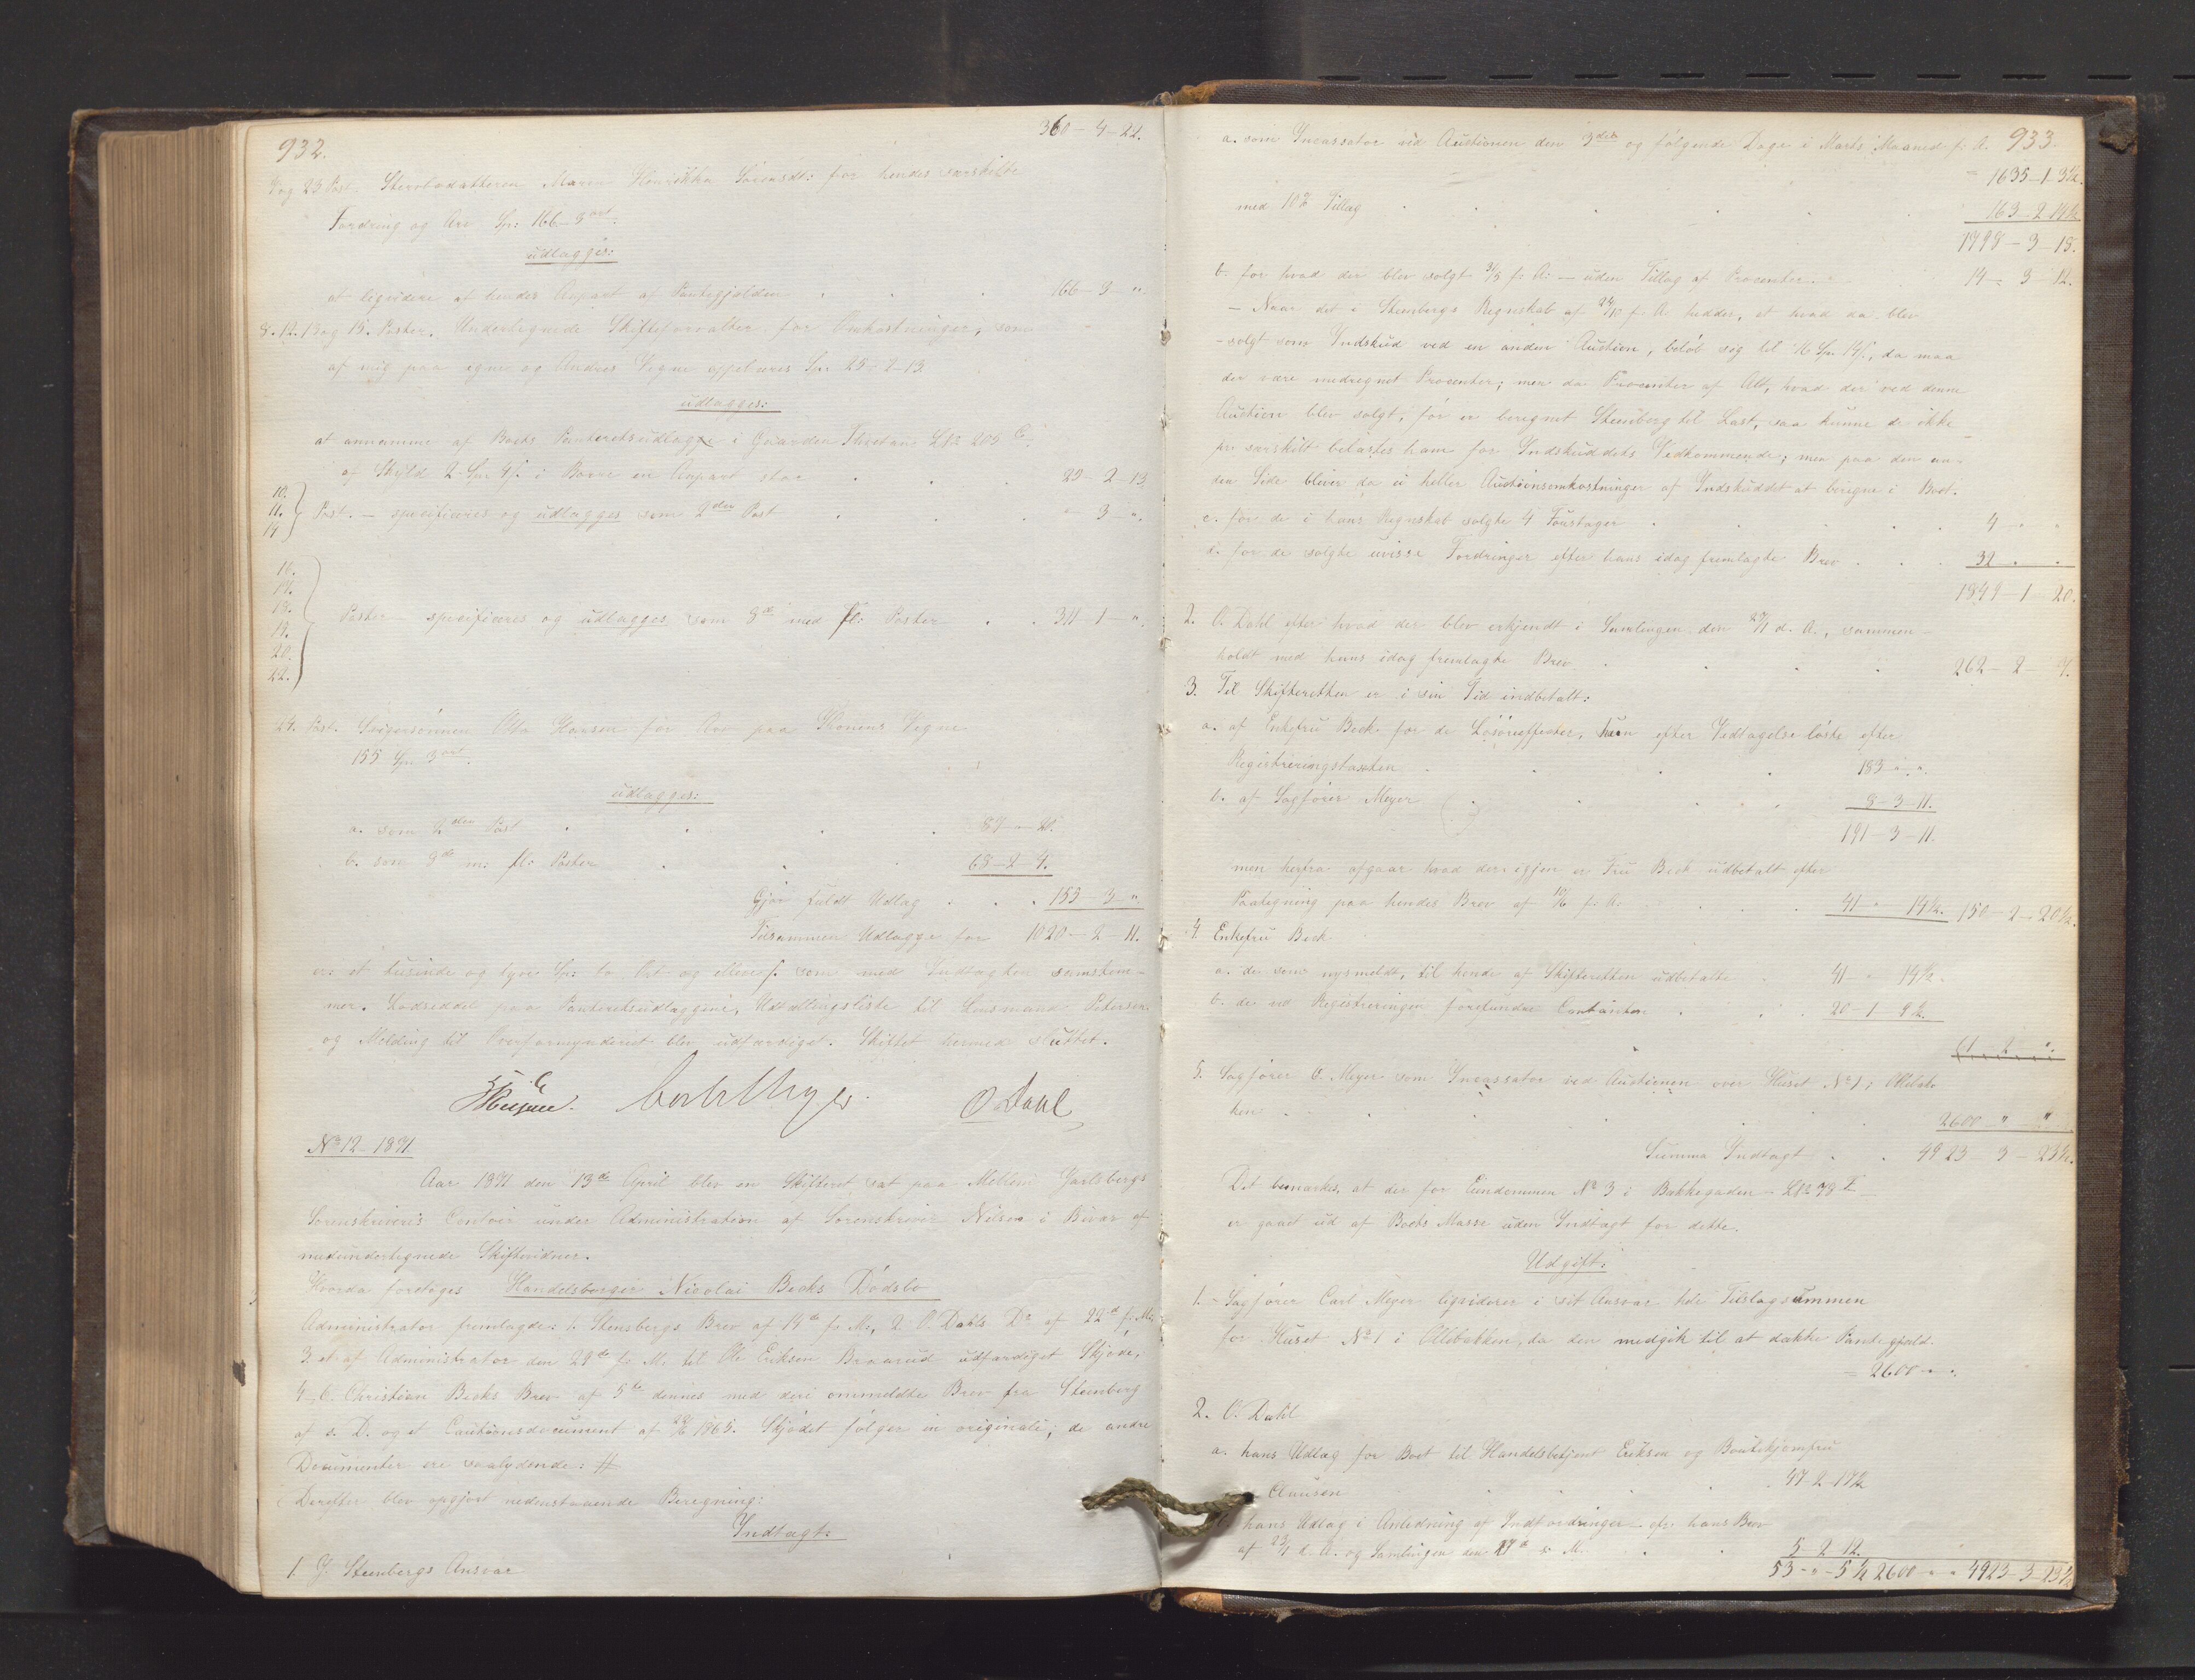 932.
360-4-22.
7 og 23 Post. Stervbodatteren Maren Henrikka Sörensdt: for hendes særskilte
Fordring og Arv Sp: 166-3 ort:
udlægges:
at liqvidere af hendes Anpart af Pantegjælden . . . 166-3-".
8. 12. 13 og 15. Poster. Undertegnede Skifteforvalter for Omkostninger, som
af mig paa egne og Andres Vegne oppebæres Sp: 25-2-13.
udlægges:
at annamme af Boets Panteretsudlægge i Gaarden L No 205 c.
af Skyld 2 Sp: 4 s. i Borre en Anpart stor . . . 25-2-13.
10.
11. Post. - specificeres og udlægges som 2den Post . . . "-3-".
14
16.
17.
18.
19. Poster - specificeres og udlægges som 8de med fl: Poster . . 311-1-".
20.
22.
24. Post. Svigersönnen Otto Hansen for Arv paa Konens Vegne
155 Sp: 3 ort.
udlægges:
a. som 2den Post . . . . 87-"-20.
b. som 8de m: fl: Poster . . . 68-2-4.
Gjör fuldt Udlæg . . . 155-3-"
Tilsammen Udlægge for 1020-2-11.
er: et tusinde og tyve Sp: to Ort og elleve s. som med Indtægten samstem-
mer. Lodseddel paa Panteretsudlæggene, Uddelingsliste til Lensmand Petersen
og Melding til Overformynderiet blev udfærdiget. Skiftet hermed sluttet.
Nilsen. Carl Meyer. O Dahl
No 12 - 1871
Aar 1871 den 13de April blev en Skifteret sat paa Mellem Jarlsbergs
Sorenskriveris Contoir under Administration af Sorenskriver Nilsen i Bivær af
medundertegnede Skiftevidner.
Hvorda foretoges Handelsborger Nicolai Becks Dödsbo
Administrator fremlagde: 1. Steenbergs Brev af 14de f. M., 2. O. Dahls Do af 22de f. M.,
3. et af Administrator den 29de f. M. til Ole Eriksen Braarud udfærdiget Skjöde,
4. C. Christian Becks Brev af 5te dennes med deri ommeldte Brev fra Steenberg
af s. D. og et Cautionsdocument af 1865. Skjödet fölger in originali; de andre
Documenter ere saalydende: #
Derefter blev opgjort nedenstaaende Beregning:
Indtægt:
1. J. Steenbergs Ansvar
933.
a. som Incassator ved Auctionen den 2den og fölgende Dage i Marts Maaned f. A.
1635-1-3½.
med 10% Tillæg . . . . . 163-2-14½
1798-3-18.
b. for hvad der blev solgt 31/5 f. A. - uden Tillæg af Procenter. . 14-3-12.
- Naar det i Steenbergs Regnskab af 24/10 f. A. hedder, at hvad da blev
solgt som Indskud ved en anden Auction, belöb sig til 16 Sp: 14 s., da maa
der være medregnet Procenter; men da Procenter af Alt, hvad der ved denne
Auction blev solgt, för er beregnet Steenberg til Last, saa kunne de ikke
særskilt belastes ham for Indskuddets Vedkommende; men paa den an-
den Side bliver da ei heller Auctionsomkostninger af Indskuddet at beregne i Boet.
c. for de i hans Regnskab solgte 4 Foustager . . . . 4 " "
d. for de solgte uvisse Fordringer efter hans idag fremlagte Brev . . . 32 " "
1849-1-20.
2. O. Dahl efter hvad der blev erkjendt i Samlingen den d. A., sammen-
holdt med hans idag fremlagte Brev . . . . 262-2-4.
3. Til Skifteretten er i sin Tid indbetalt:
a. af Enkefru Beck for de Lösöreeffecter, hun efter Vedtagelse löste efter
Registreringstaxten . . . . 183 " ".
b. af Sagförer Meyer . . . 8-3-11.
191-3-11.
men herfra afgaar hvad der igjen er Fru Beck udbetalt efter
Paategning paa hendes Brev af 10/6 f. A. . . . 41 " 14½. 150-2-20½.
4. Enkefru Beck
a. de som nysmeldt, til hende af Skifteretten udbetalte . 41 " 14½.
b. de ved Registreringen forefundne Contanter . . . 20-1-9½.
61-2-".
5. Sagförer C. Meyer som Incassator ved Auctionen over Huset No 1 i Ollebak
ken . . . . . 2600 " "
Summa Indtægt . . 4923-3-23½.
Det bemærkes, at der for Eiendommen No 3 i Bakkegaden - L No 98
er gaaet ud af Boets Masse uden Indtægt for dette.
Udgift:
1. Sagförer Carl Meyer liqviderer i sit Ansvar hele Tilslagsummen
for Huset No 1 i Ollebakken, da den medgik til at dække Pantegjæld.
2600 " ".
2. O. Dahl
a. hans Udlæg for Boet til Handelsbetjent Eriksen og Boutikjomfru
Clausen . . . . 47-2-17½
hans Udlæg i Anledning af Indfordringer - cfr. hans Brev
af d. A. og Samlingen den s. M. . . 5-2-12.
53-"-5½ 2600 " " 4923-3-23½